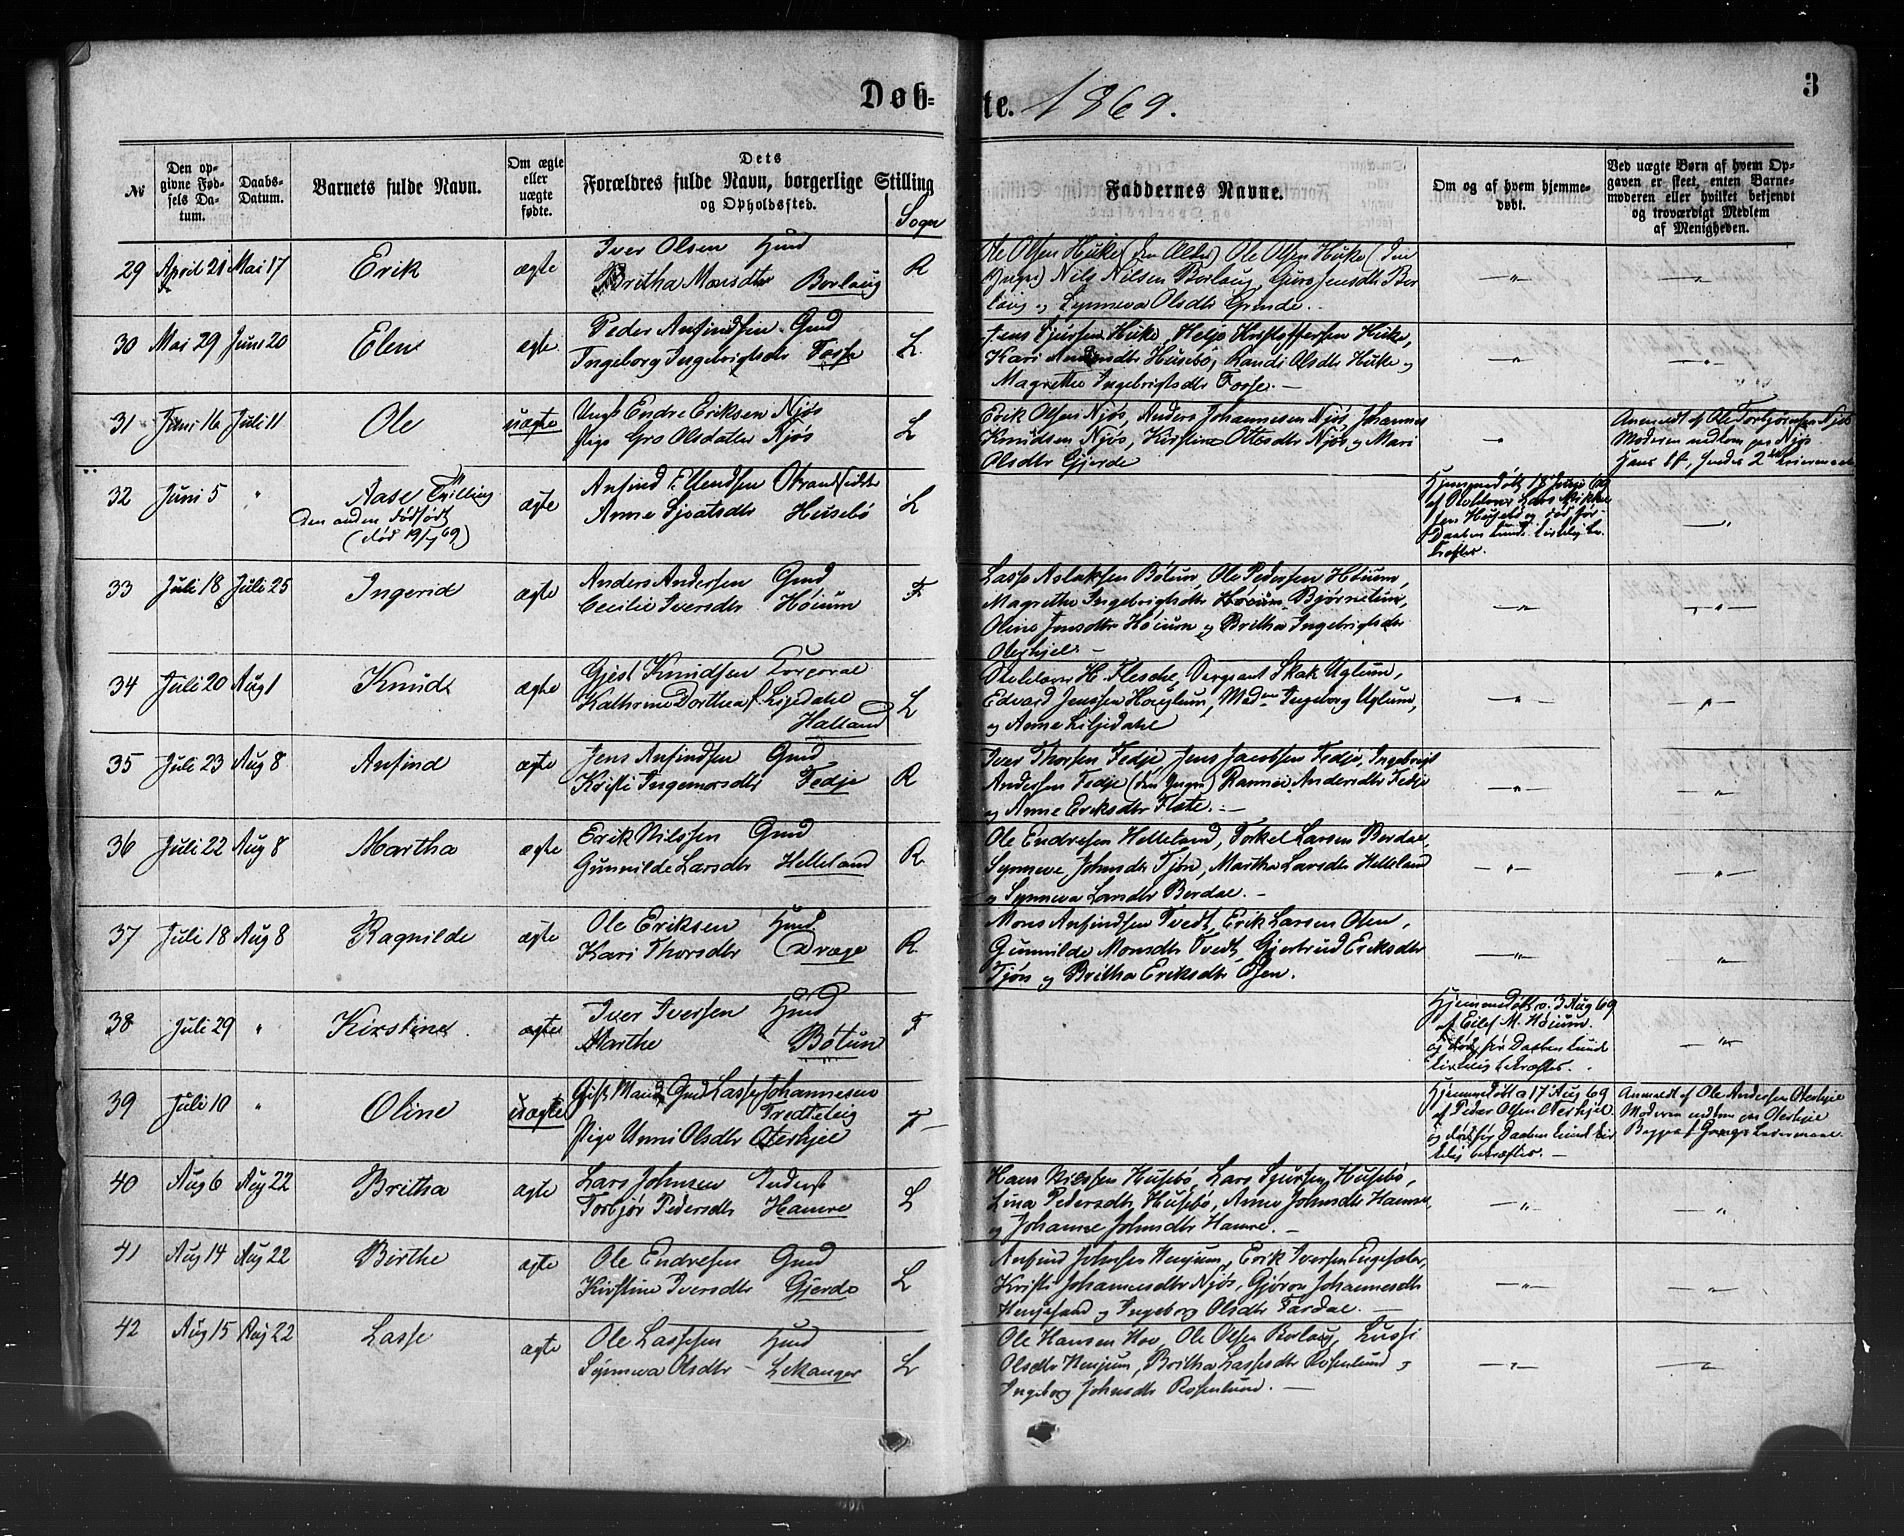 Døb=
te. 1869.
3
№
Den op-
givne Fød-
sels Da-
tum.
Daabs-
Datum.
Barnets fulde Navn.
Om ægte
eller
uægte
fødte.
Dets
Forældres fulde Navn, borgerlige Stilling
og Opholdssted.
Sogn
Faddernes Navne.
Om og af hvem hjemme-
døbt.
Ved uægte Børn af hvem Op-
gaven er skeet, enten Barne-
moderen eller hvilket bekjendt
og troværdigt Medlem
af Menigheden.
29 April 21 Mai 17 Erik ægte Iver Olsen Gmd R
Britha Monsdtr Borlaug
Ole Olsen Huke (den Ældre) Ole Olsen Huke (den
Yngre) Nils Nilsen Borlaug, Guro Jensdtr Bor
laug og Synneva Olsdtr Grinde.
30 Mai 29 Juni 20 Elen ægte Peder Anfindsen Gmd L
Ingeborg Ingebrigtsdtr Fosse
Jens Sjursen Huke, Helje Kristoffersen Huke,
Kari Husebø, Randi Olsdtr Huke og
Magrethe Ingebrigtsdtr Fosse.
31 Juni 16 Juli 11 Ole uægte Ungk Endre Eriksen Njøs L
Pige Gro Olsdatter Njøs
Erik Olsen Njøs, Anders Johannesen Njøs, Johannes
Knudsen Njøs, Kirstine Ottesdtr Njøs og Mari
Olsdtr Gjerde
Anmeldt af Ole Torbjørnsen Njøs
Moderen Njøs
Hans 1st, hendes 2det Leiermaal
32 Juni 5 " Aase Tvilling ægte Anfind Ellendsen Strandsidder L
den anden dødfødt
(død 19/7 69) Anne Sjvatsdtr Husebø
Hjemmedøbt 18 Juni 69
af Lars Mikkel
sen Husebø og død før
Daaben kunde kirkelig be
kræftes.
33 Juli 18 Juli 25 Ingerid ægte Anders Andersen Gmd F
Cecilie Iversdtr Høium
Lasse Aslaksen Bøtun, Ole Pedersen Høium,
Magrethe Ingebrigtsdtr Høium Bjørnetun,
Oline Jensdtr Høium og Britha Ingebrigtsdtr
Oterhjel.
34 Juli 20 Aug 1 Knud ægte Gjest Knudsen Corporal L
Kathrine Dorthea f. Liljedahl
Halland
H. Flesche, Sergeant Skak Uglum,
Edvard Jenssen Houglum, Madm Ingeborg Uglum,
og Anne Liljedahl
35 Juli 23 Aug 8 Anfind ægte Jens Anfindsen Gmd R
Kristi Ingemorsdtr Fedje
Iver Thorsen Fedje, Jens Jacobsen Fedje, Ingebrigt
Andersen Fedje (den Yngre) Rannei Andersdtr Fedje
og Anne Eriksdtr Flate.
36 Juli 22 Aug 8 Martha ægte Erik Nilssen Gmd R
Gunnilde Larsdtr Helleland
Ole Endresen Helleland, Torkel Larsen Berdal,
Synneve Johnsdtr Tjøn, Martha Larsdtr Helleland
og Synneva Larsdtr Berdal.
37 Juli 18 Aug 8 Ragnilde ægte Ole Eriksen Hmd R
Kari Thorsdtr Dvæge
Mons Anfindsen Tvedt, Erik Larsen Øsen,
Gunnilde Monsdtr Tvedt, Gjertrud Eriksdtr
Tjøn og Britha Eriksdtr Øsen.
38 Juli 29 " Kirstine ægte Iver Iversen Hmd F
Marthe Bøtun
Hjemmedøbt 3 Aug 69
af Eilef M. Høium
og død før Daaben kunde
kirkelig bekræftes.
39 Juli 10 " Oline uægte Gift Mand Gmd Lasse Johannesen F
Tredheteig
Pige Unni Olsdtr Oterhjel
Hjemmedøbt 17 Aug 69
af Peder Olsen Oterhjel
og død før Daaben kunde kir
kelig bekræftes.
Anmeldt af Ole Andersen Oterhjel
Moderen Oterhjel
Begges 1 Gangs Leiermaal.
40 Aug 6 Aug 22 Britha ægte Lars Johnsen Inderst L
Torbjør Pedersdtr Hamre
Hans Nilssen Husebø, Lars Sjursen Husebø,
Lina Pedersdtr Husebø, Anne Johnsdtr Hamre,
og Johanne Johnsdtr Hamre.
41 Aug 14 Aug 22 Birthe ægte Ole Endresen Gmd L
Kirstine Iversdtr Gjerde
Anfind Johnsen Henjum, Erik Iversen Engesæter,
Kristi Johannesdtr Njøs, Gjøron Johannesdtr
Henjesand og Ingeborg Olsdtr Fardal.
42 Aug 15 Aug 22 Lasse ægte Ole Lassesen Hmd L
Synneva Olsdtr Lekanger
Ole Hansen Hov, Ole Olsen Borlaug, Lussi
Olsdtr Henjum, Britha Lassesdtr Rosenlund og
Ingeborg Johnsdtr Rosenlund.